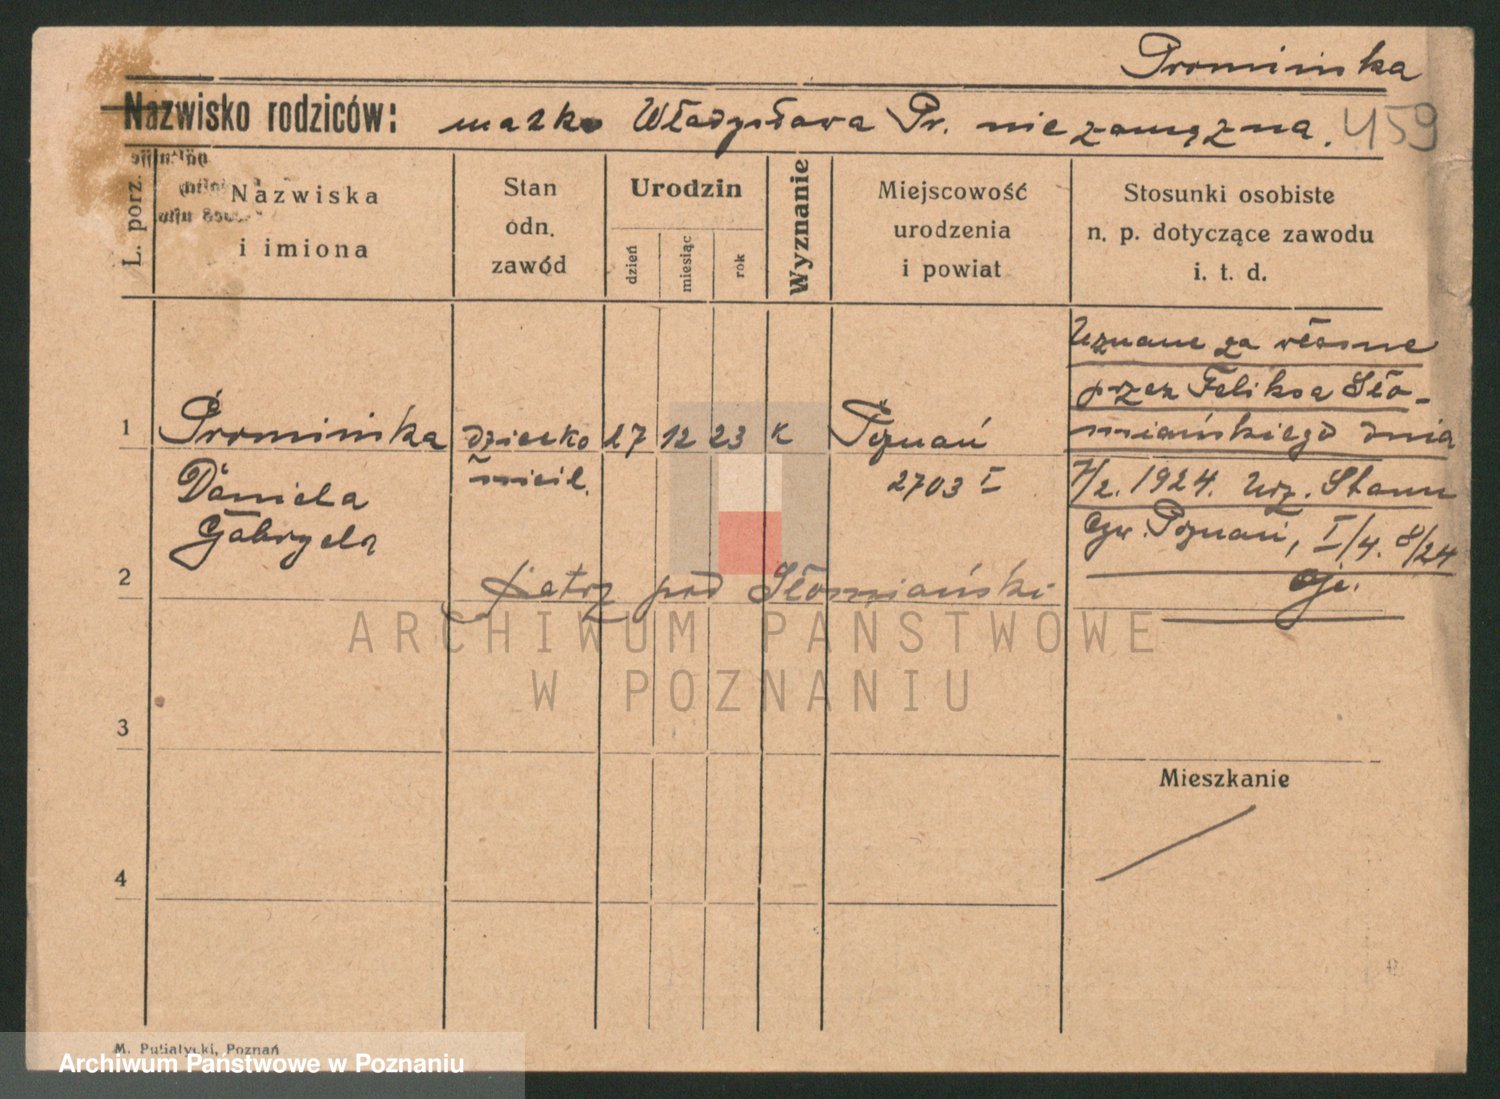 Prominska
Nazwisko rodziców: matka Władysława Pr. niezamężna. 459
L. porz.
Nazwiska
i imiona
Stan
odn.
zawód
Urodzin
dzień
miesiąc
rok
Wyznanie
Miejscowość
urodzenia
i powiat
Stosunki osobiste
n. p. dotyczące zawodu
i. t. d.
Uznane za własne
przez Feliksa Sło-
miańskiego dnia
7/2. 1924. Urz. Stanu
Cyw. Poznań, I/4. 8/24
1 Prominska dziecko 17 12 23 k Poznań
nieśl. 2703 I
Daniela
Gabryela
2 patrz pod Słomiański
3
Mieszkanie
4
M. Putiatycki, Poznań
ARCHIWUM PAŃSTWOWE
W POZNANIU
Archiwum Państwowe w Poznaniu